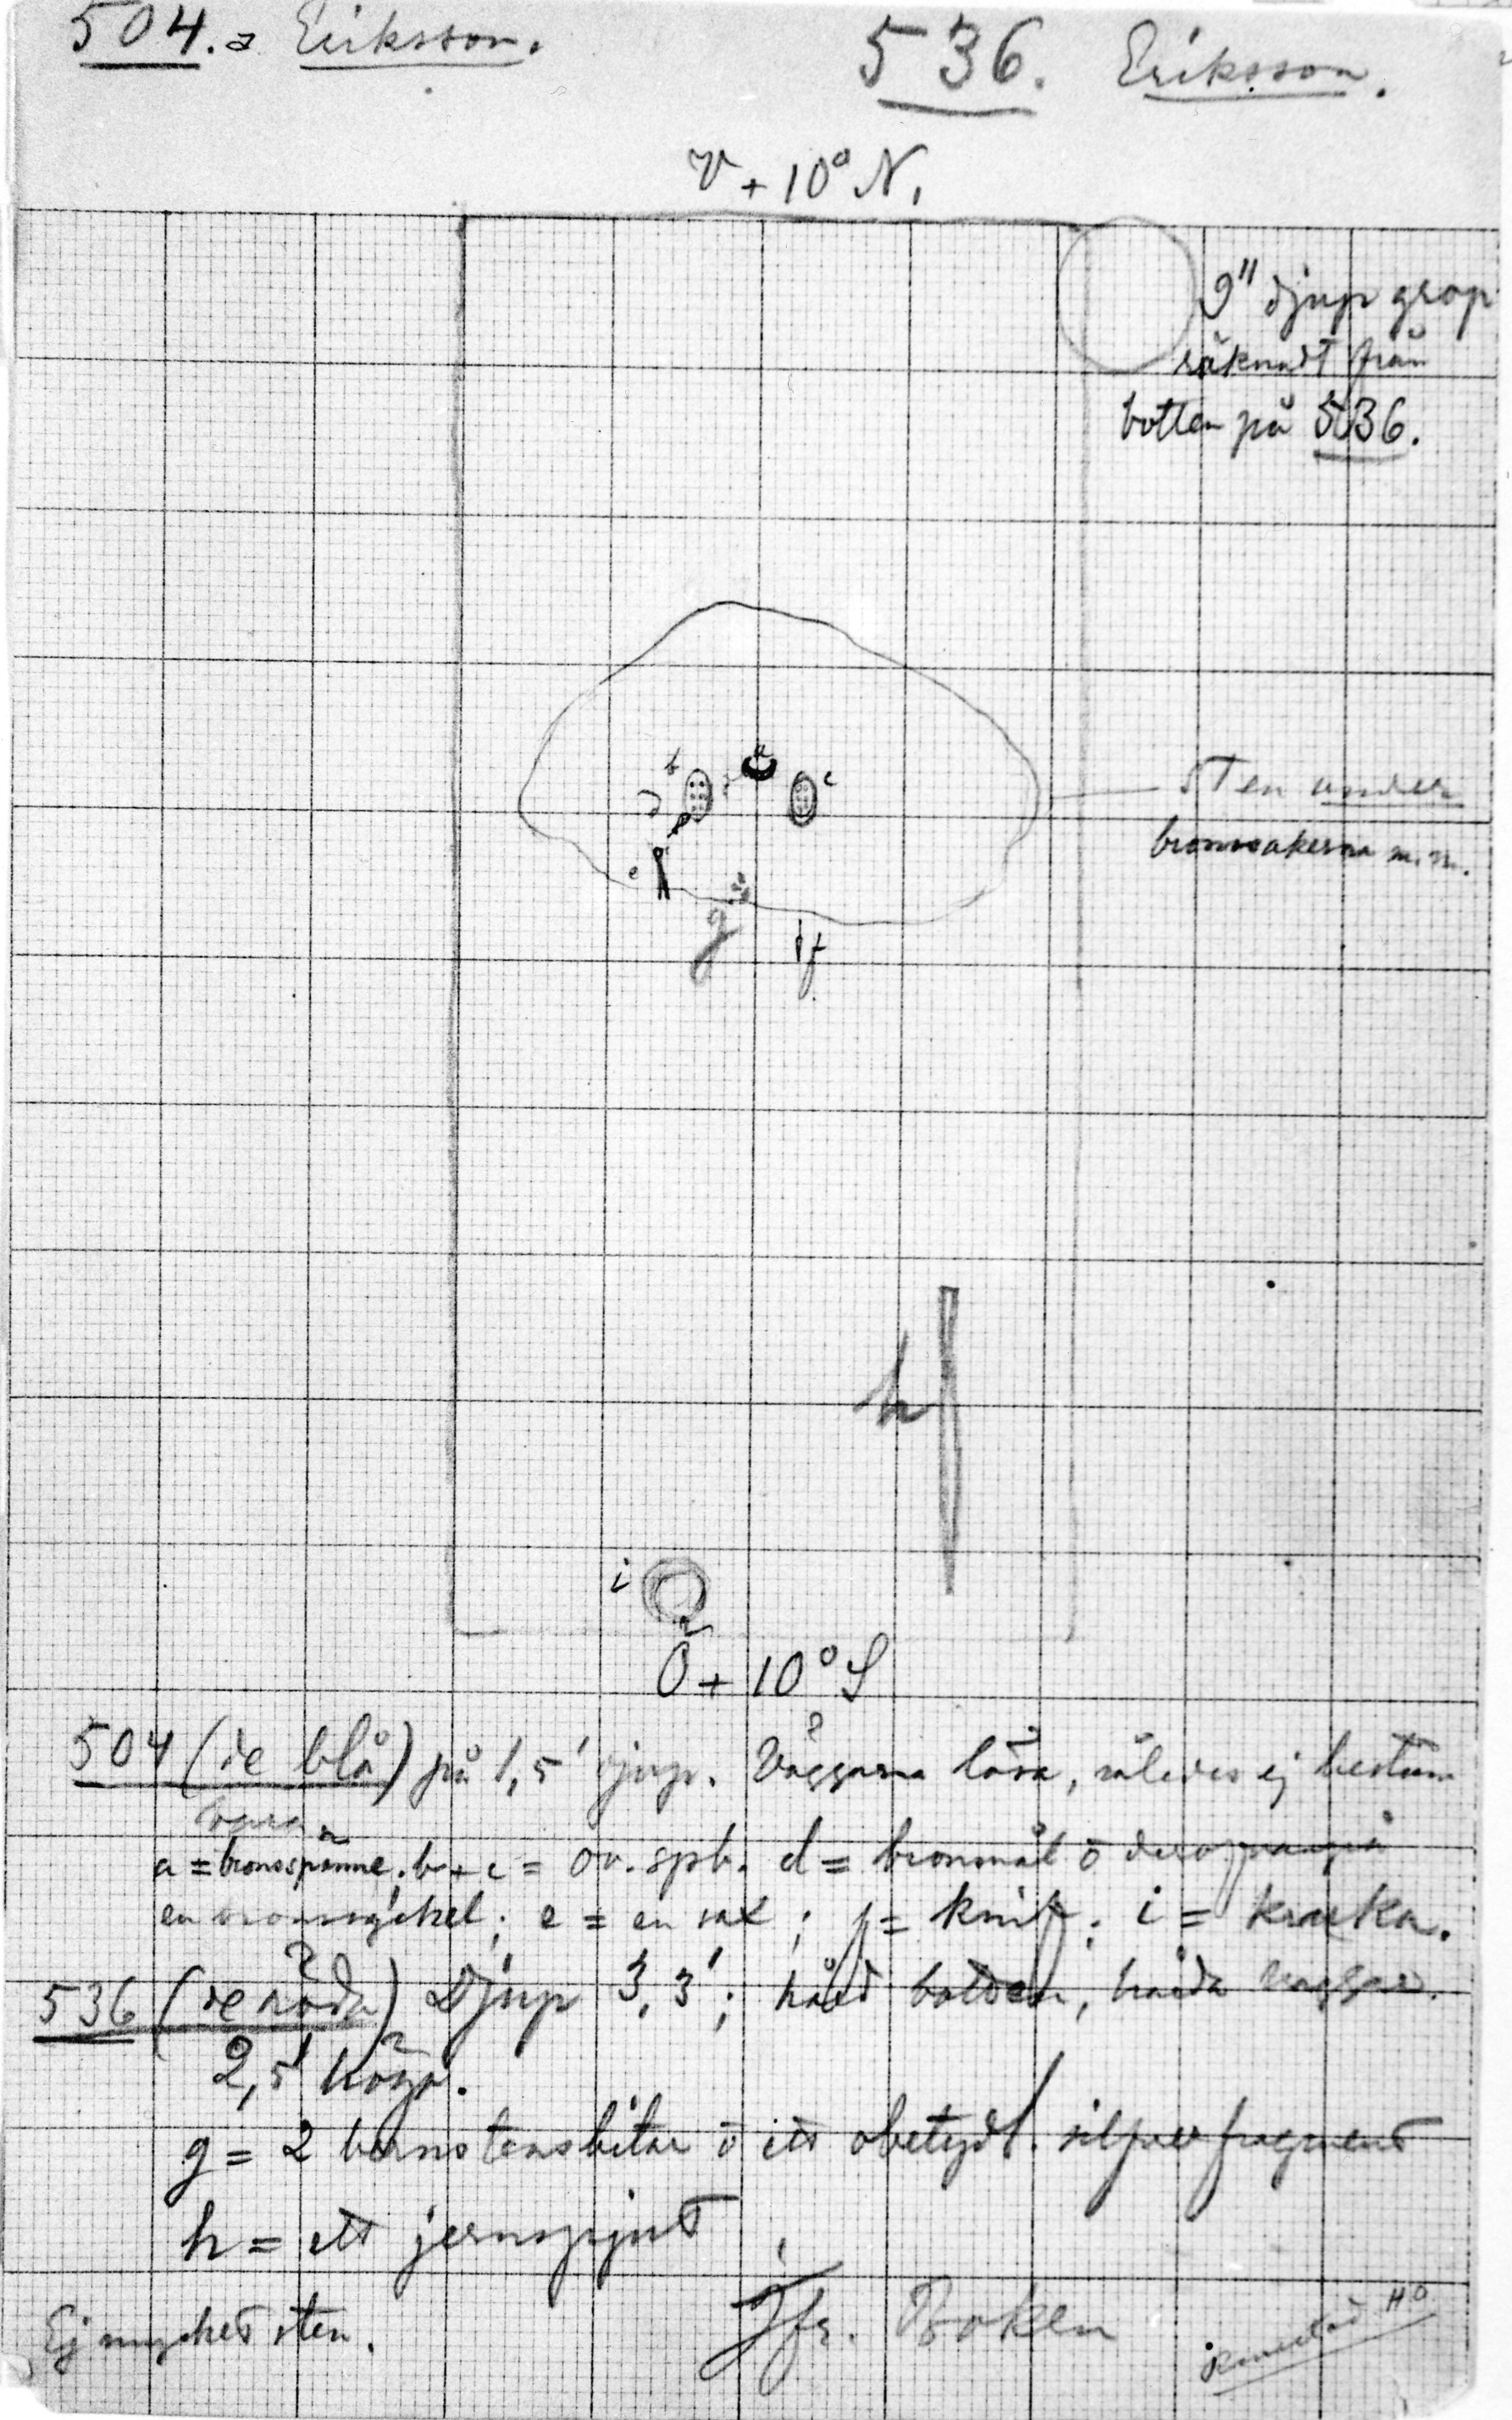 504.a Eriksson.
536. Eriksson.
V + 10° N.
9" djup grop
räknadt från
botten på 536.
b
a
c
d
e
g
f
Sten under
bronssakerna m.m.
h
i
Ö + 10° S
504 (de blå) på 1,5' djup. Väggarna lösa, således ej bestäm
a = bronsspänne; b + c = ov. spb. d = bronsnål o
en bronsnyckel; e = en sax; f = knif. i = kruka.
536 (de röda) Djup 3,3'; hård botten, hårda väggar.
2,5' höga.
g = 2 bernstensbitar o ett obetydl. silfverfragment
h = ett jernspjut
Ej mycket sten.
Jfr. Boken
HO